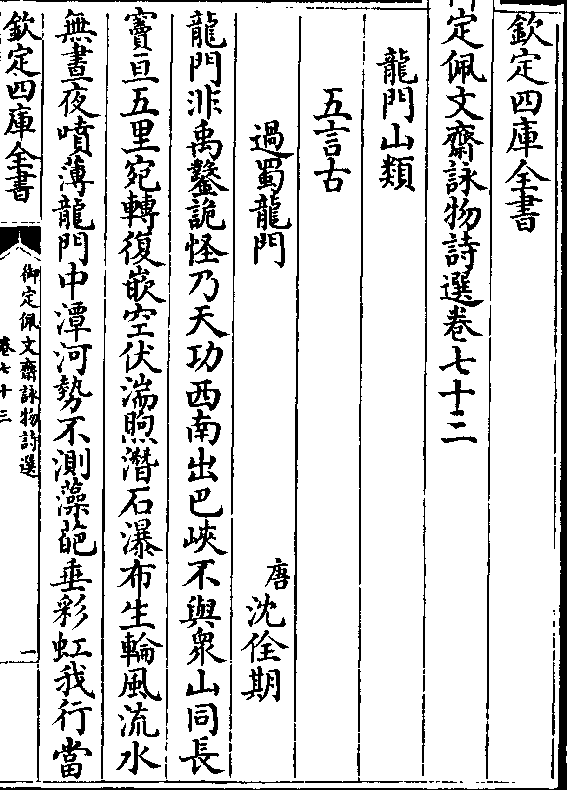 欽定四庫全書
定佩文齋詠物詩選卷七十二
龍門山類
五言古
過蜀龍門 唐 沈佺期
龍門非禹鑿詭怪乃天功西南出巴峽不與衆山同長
竇亘五里宛轉復嵌空伏湍煦潛石瀑布生輪風流水
無晝夜噴薄龍門中潭河勢不測藻葩垂彩虹我行當
欽定四庫全書
御定佩文齋詠物詩選
卷七十三
一